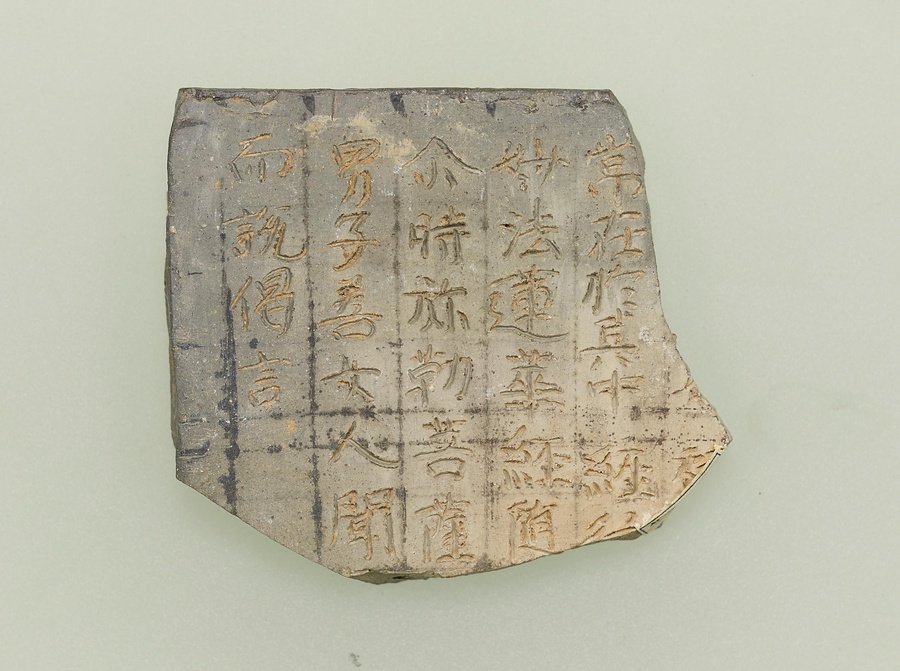 常在於其中 經行
妙法蓮華經隨
尒時弥勒菩薩
男子善女人聞
而說偈言